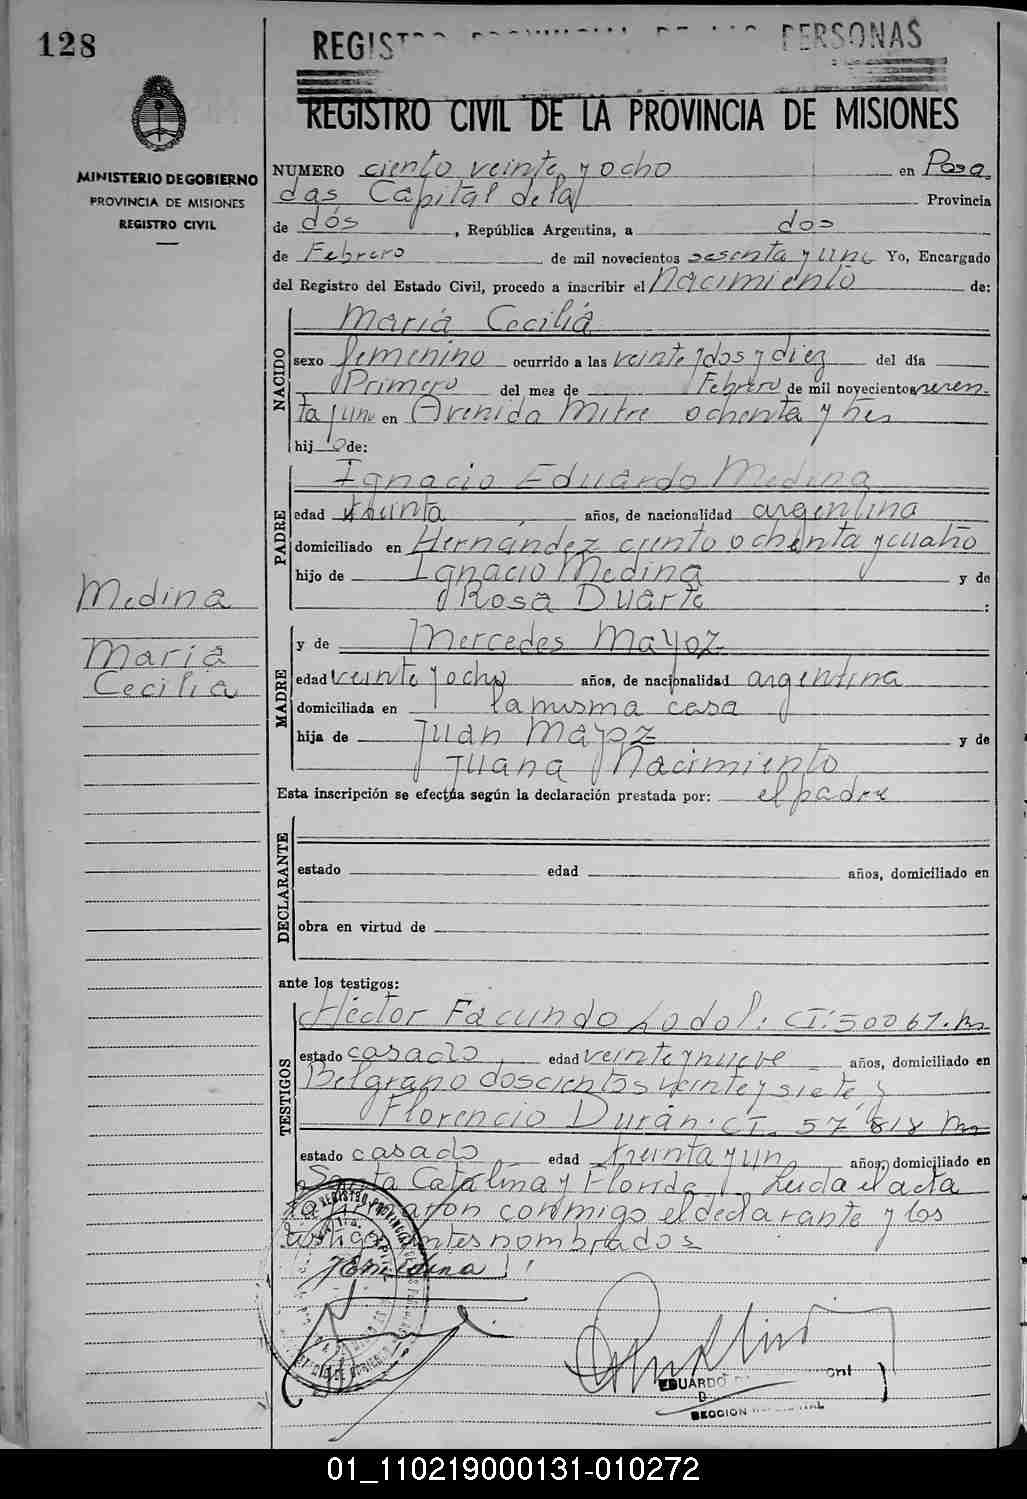 128
REGISTRO PROVINCIAL DE LAS PERSONAS
REGISTRO CIVIL DE LA PROVINCIA DE MISIONES
MINISTERIO DE GOBIERNO
PROVINCIA DE MISIONES
REGISTRO CIVIL
NUMERO ciento veinte y ocho en Posa
das Capital de la Provincia
de dós, República Argentina, a dos
de Febrero de mil novecientos sesenta y uno Yo, Encargado
del Registro del Estado Civil, procedo a inscribir el Nacimiento de:
NACIDO
María Cecilia
sexo femenino ocurrido a las veinte y dos y diez del día
Primero del mes de Febrero de mil novecientos sesen
ta y uno en Avenida Mitre ochenta y tres
hij a de:
PADRE
Ignacio Eduardo Medina
edad treinta años, de nacionalidad argentina
domiciliado en Hernández ciento ochenta y cuatro
hijo de Ignacio Medina y de
Rosa Duarte :
Medina
María
Cecilia
MADRE
y de Mercedes Mayoz
edad veinte y ocho años, de nacionalidad argentina
domiciliada en la misma casa
hija de Juan Mayoz y de
Juana Nacimiento
Esta inscripción se efectúa según la declaración prestada por: el padre
DECLARANTE
estado edad años, domiciliado en
obra en virtud de
ante los testigos:
TESTIGOS
Héctor Facundo CI: 50067. Ms
estado casado edad veinte y nueve años, domiciliado en
Belgrano doscientos veinte y siete y
Florencio Durán. CI. 57 818 Ms
estado casado edad treinta y un años, domiciliado en
Santa Catalina y Florida Leida el acta
la firmaron conmigo el declarante y los
testigos antes nombrados
EDUARDO
SECCION
01_110219000131-010272